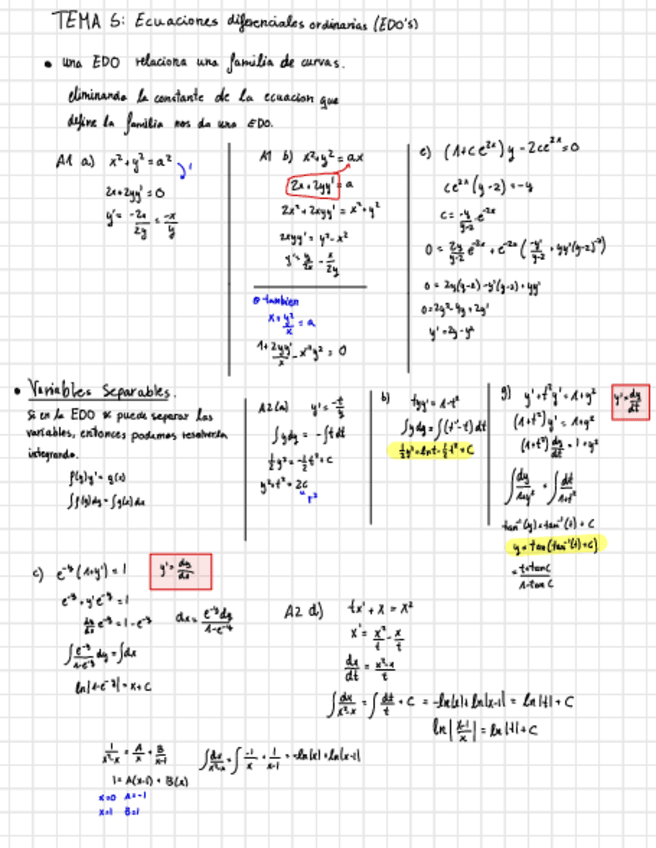 TEMA 5: Ecuaciones diferenciales ordinarias (EDO's)
• una EDO relaciona una familia de curvas.
eliminando la constante de la ecuacion que
define la familia nos da una EDO.
A1 a) x²+y²=a²
2x+2yy'=0
y'=-2x/2y=-x/y
A1 b) x²+y²=ax
2x+2yy'=a
2x²+2xyy'=x²+y²
2xyy'=y²-x²
y'=y/2x-x/2y
o tambien
x+y²/x=a
e) (1+ce²ˣ)y-2ce²ˣ=0
ce²ˣ(y-2)=-y
c=-y/y-2 e⁻²ˣ
0=2y(y-2)-y'(y-2)+yy'
0=2y²-4y+2y'
y'=2y-y²
• Variables Separables.
Si en la EDO se puede separar las
variables, entonces podemos resolverla
integrando.
f(y)y'=g(x)
∫f(y)dy=∫g(x)dx
A2(a) y'=-t/y
∫ydy=-∫tdt
½y²=-½t²+C
y²+t²=2C
"r²
b) tyy'=1-t²
∫ydy=∫(t⁻¹-t)dt
½y²=lnt-½t²+C
g) y'+t²y'=1+y²
y'=dy/dt
(1+t²)y'=1+y²
(1+t²)dy/dt=1+y²
∫dy/1+y²=∫dt/1+t²
tan⁻¹(y)=tan⁻¹(t)+C
y=tan(tan⁻¹(t)+C)
=t+tanC/1-tan C
c) e⁻ʸ(1+y')=1
y'=dy/dx
e⁻ʸ+y'e⁻ʸ=1
dy/dx e⁻ʸ=1-e⁻ʸ
dx=e⁻ʸdy/1-e⁻ʸ
∫e⁻ʸ/1-e⁻ʸ dy=∫dx
ln|1-e⁻ʸ|=x+C
A2 d) tx'+x=x²
x'=x²/t-x/t
dx/dt=x²-x/t
∫dx/x²-x=∫dt/t+C=-ln|x|+ln|x-1|=ln|t|+C
ln|x-1/x|=ln|t|+C
1/x²-x=A/x+B/x-1
∫dx/x²-x=∫-1/x+1/x-1=-ln|x|+ln|x-1|
1=A(x-1)+B(x)
x=0 A=-1
x=1 B=1